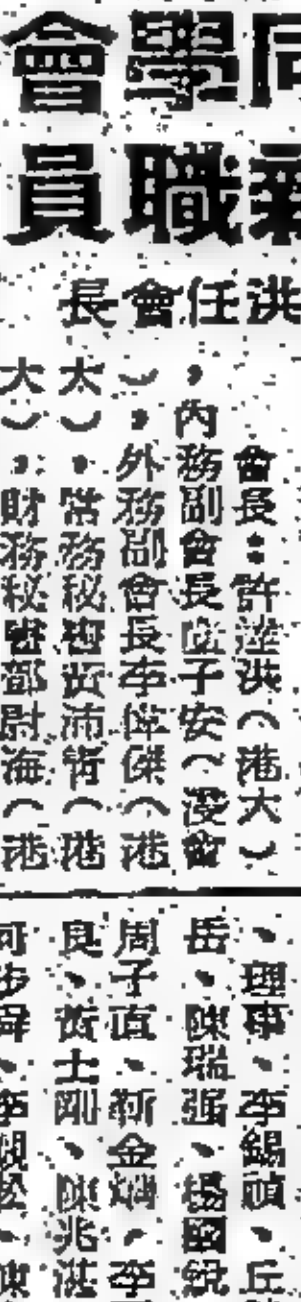 同學會
新職員
洪任會長
會長：許達洪（港大）
，內務副會長 子安（浸會
），外務副會長李偉傑（港
大），常務秘書黃沛 （港
大），財務秘書鄧尉海（港
、理事、李錫禎、丘
岳、陳瑞強、楊國銳
周子直、靳金 、李
良、黃士剛、陳兆洪
何步舜、李 松、陳